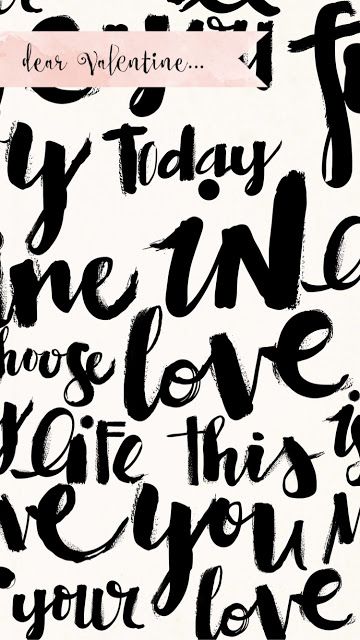 dear Valentine...
y Today
ine IN
hoose love
life this is
ve you
your love